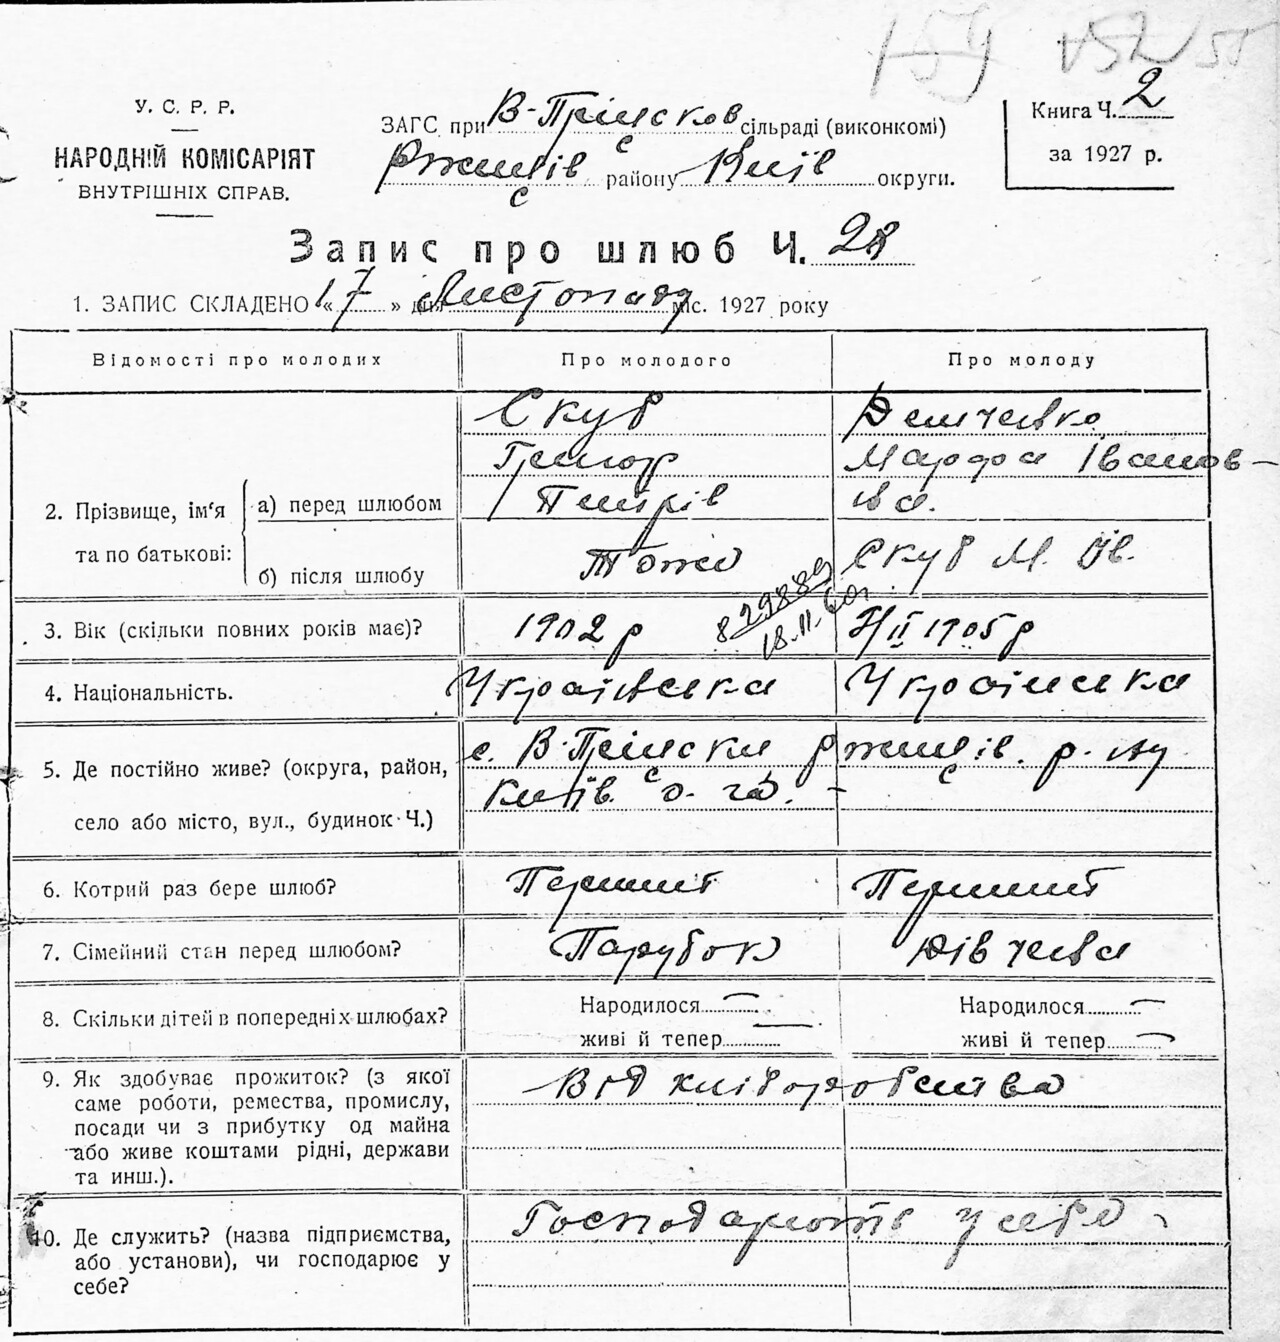 У. С. Р. Р.
НАРОДНІЙ КОМІСАРІЯТ
ВНУТРІШНІХ СПРАВ.
ЗАГС при В-Прицсков сільраді (виконкомі)
Ржищів району Київ округи.
Книга Ч. 2
за 1927 р.
Запис про шлюб Ч. 28
1. ЗАПИС СКЛАДЕНО «17» дня Листопаду міс. 1927 року
Відомості про молодих
Про молодого
Про молоду
2. Прізвище, ім'я та по батькові:
а) перед шлюбом
Скуб
Григор
Петрів
Демченко
Марфа Іванов-
на.
б) після шлюбу
Тоже
Скуб М. Ів.
829889
18.11.60р
3. Вік (скільки повних років має)?
1902 р
II 1905 р
4. Національність.
Українська
Українська
5. Де постійно живе? (округа, район,
село або місто, вул., будинок Ч.)
с. В-Прицски Ржищів. р-ну
Київ. о-га. -
6. Котрий раз бере шлюб?
Перший
Перший
7. Сімейний стан перед шлюбом?
Парубок
Дівчена
8. Скільки дітей в попередніх шлюбах?
Народилося —
живі й тепер —
Народилося —
живі й тепер —
9. Як здобуває прожиток? (з якої
саме роботи, ремества, промислу,
посади чи з прибутку од майна
або живе коштами рідні, держави
та инш.).
Від хліборобства
10. Де служить? (назва підприємства,
або установи), чи господарює у
себе?
Господарють у себе